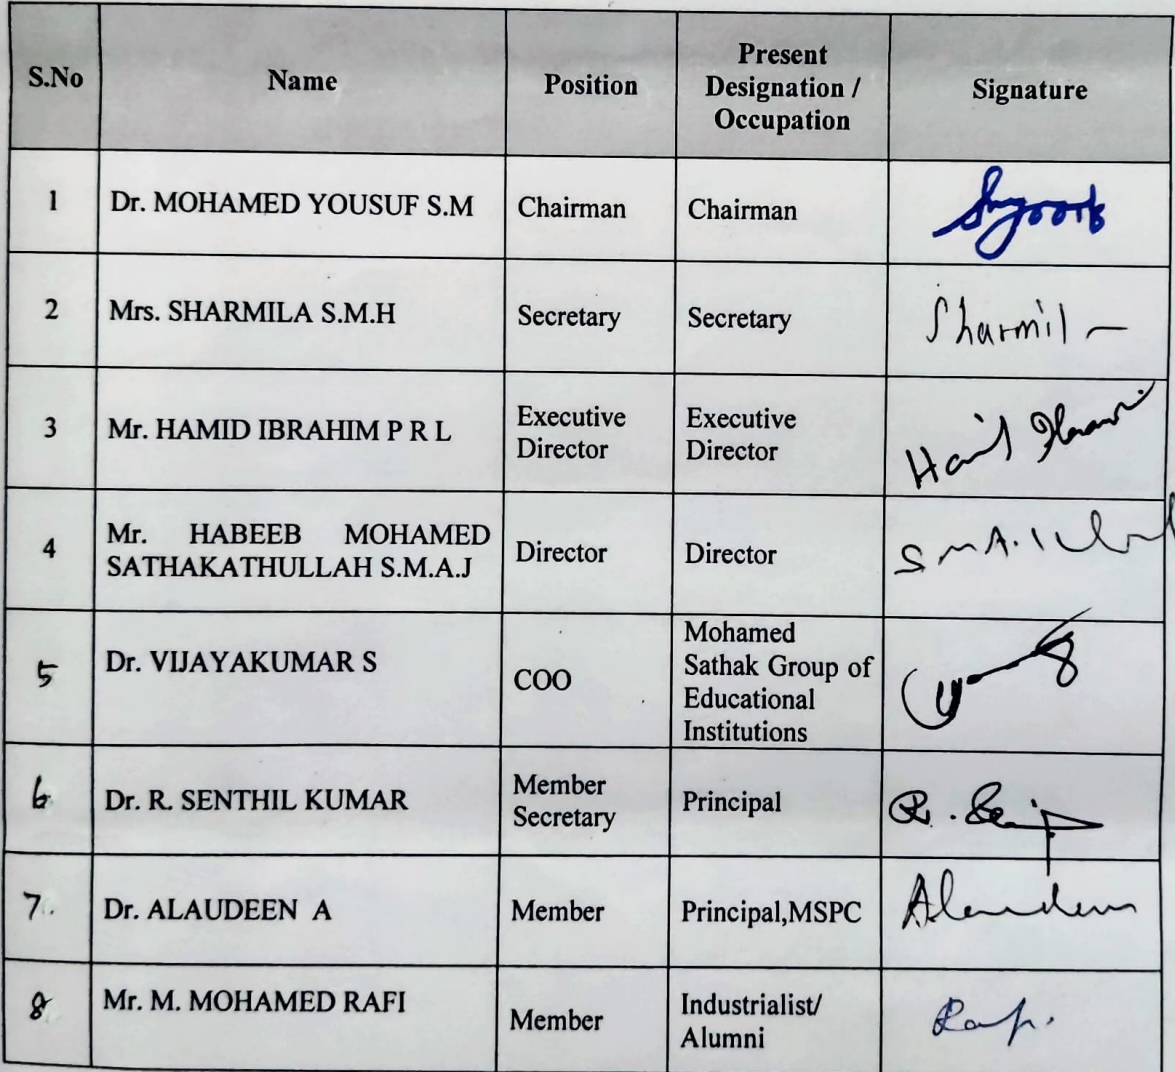 S.No Name Position Present Designation / Occupation Signature
1 Dr. MOHAMED YOUSUF S.M Chairman Chairman
2 Mrs. SHARMILA S.M.H Secretary Secretary Sharmil
3 Mr. HAMID IBRAHIM P R L Executive Director Executive Director
4 Mr. HABEEB MOHAMED SATHAKATHULLAH S.M.A.J Director Director
5 Dr. VIJAYAKUMAR S COO Mohamed Sathak Group of Educational Institutions
6 Dr. R. SENTHIL KUMAR Member Secretary Principal
7. Dr. ALAUDEEN A Member Principal,MSPC Alaudeen
8 Mr. M. MOHAMED RAFI Member Industrialist/ Alumni